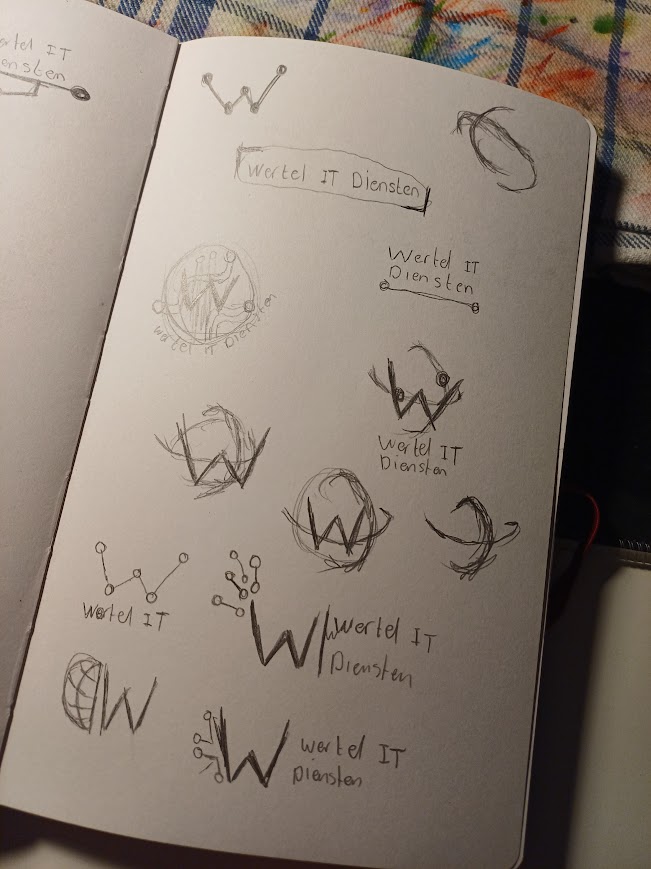 Wertel IT
Diensten
W
Wertel IT Diensten
W
Wertel IT Diensten
Wertel IT
Diensten
W
Wertel IT
Diensten
W
W
W
Wertel IT
W
Wertel IT
Diensten
W
W
Wertel IT
Diensten